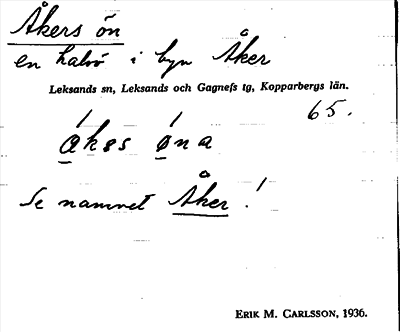 Åkers ön
en halvö i byn Åker
Leksands sn, Leksands och Gagnefs tg, Kopparbergs län.
65.
ákss ǿna
Se namnet Åker!
ERIK M. CARLSSON, 1936.